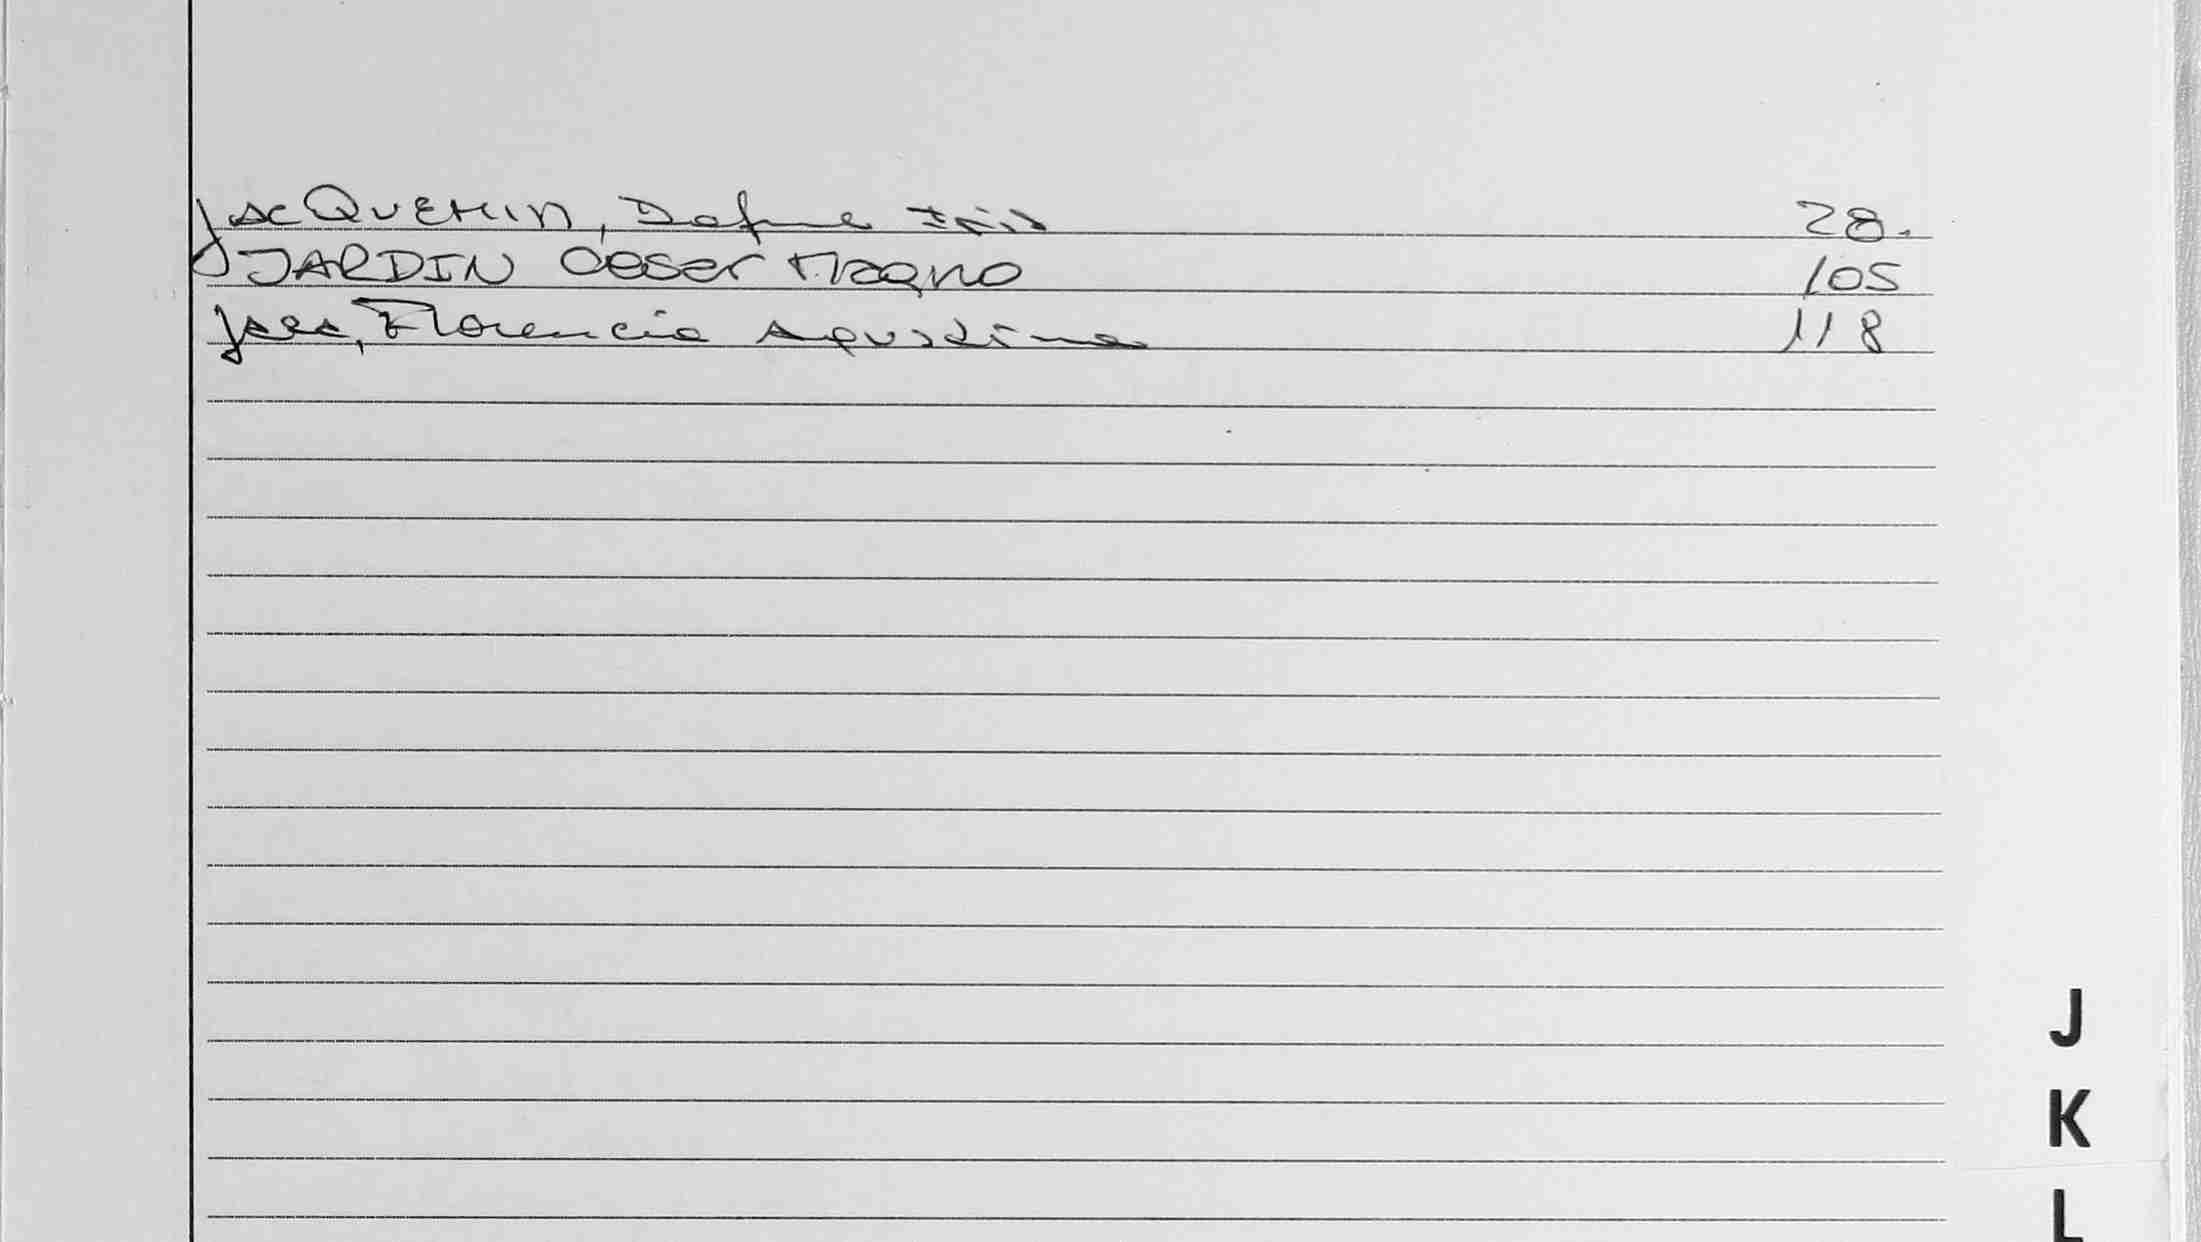 JACQUEMIN, Dafne Iris 28.
JARDIN Cesar Magno 105
Jara, Florencia Agustina 118
J
K
L